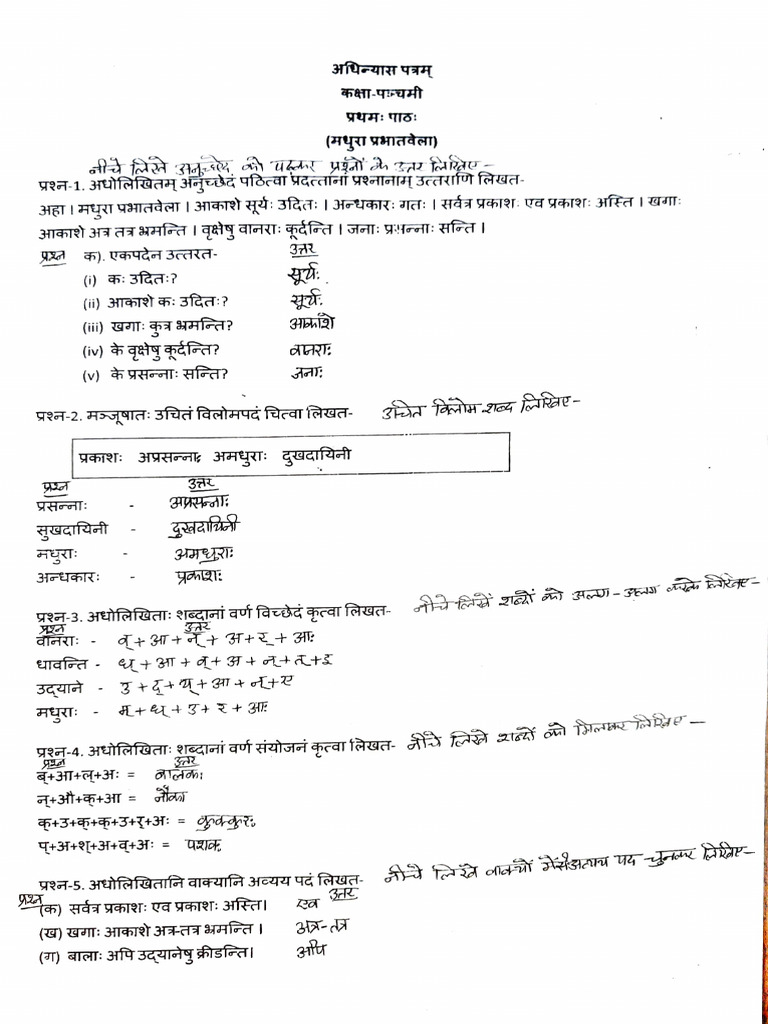 अधिन्यास पत्रम्
कक्षा-पञ्चमी
प्रथमः पाठः
(मधुरा प्रभातवेला)
नीचे लिखे अनुच्छेद को पढ़कर प्रश्नों के उत्तर लिखिए -
प्रश्न-1. अधोलिखितम् अनुच्छेदं पठित्वा प्रदत्तानां प्रश्नानाम् उत्तराणि लिखत-
अहा । मधुरा प्रभातवेला । आकाशे सूर्यः उदितः । अन्धकारः गतः । सर्वत्र प्रकाशः एव प्रकाशः अस्ति । खगाः
आकाशे अत्र तत्र भ्रमन्ति । वृक्षेषु वानराः कूर्दन्ति । जनाः प्रसन्नाः सन्ति ।
प्रश्न क). एकपदेन उत्तरत- उत्तर
(i) कः उदितः? सूर्यः
(ii) आकाशे कः उदितः? सूर्यः
(iii) खगाः कुत्र भ्रमन्ति? आकाशे
(iv) के वृक्षेषु कूर्दन्ति? वानराः
(v) के प्रसन्नाः सन्ति? जनाः
प्रश्न-2. मञ्जूषातः उचितं विलोमपदं चित्वा लिखत- उचित विलोम शब्द लिखिए-
प्रकाशः अप्रसन्नाः अमधुराः दुखदायिनी
प्रश्न उत्तर
प्रसन्नाः - अप्रसन्नाः
सुखदायिनी - दुखदायिनी
मधुराः - अमधुराः
अन्धकारः - प्रकाशः
प्रश्न-3. अधोलिखिताः शब्दानां वर्ण विच्छेदं कृत्वा लिखत- नीचे लिखे शब्दों को अलग-अलग करके लिखिए-
प्रश्न उत्तर
वानराः - व्+आ+न्+अ+र्+आः
धावन्ति - ध्+आ+व्+अ+न्+त्+इ
उद्याने - उ+द्+य्+आ+न्+ए
मधुराः - म्+ध्+उ+र+आः
प्रश्न-4. अधोलिखिताः शब्दानां वर्ण संयोजनं कृत्वा लिखत- नीचे लिखे शब्दों को मिलाकर लिखिए-
प्रश्न उत्तर
ब्+आ+ल्+अः = बालकः
न्+औ+क्+आ = नौका
क्+उ+क्+क्+उ+र्+अः = कुक्कुरः
प्+अ+श्+अ+व्+अः =
प्रश्न-5. अधोलिखितानि वाक्यानि अव्यय पदं लिखत- नीचे लिखे वाक्यों में पद चुनकर लिखिए-
प्रश्न उत्तर
(क) सर्वत्र प्रकाशः एव प्रकाशः अस्ति। एव
(ख) खगाः आकाशे अत्र-तत्र भ्रमन्ति । अत्र-तत्र
(ग) बालाः अपि उद्यानेषु क्रीडन्ति। अपि